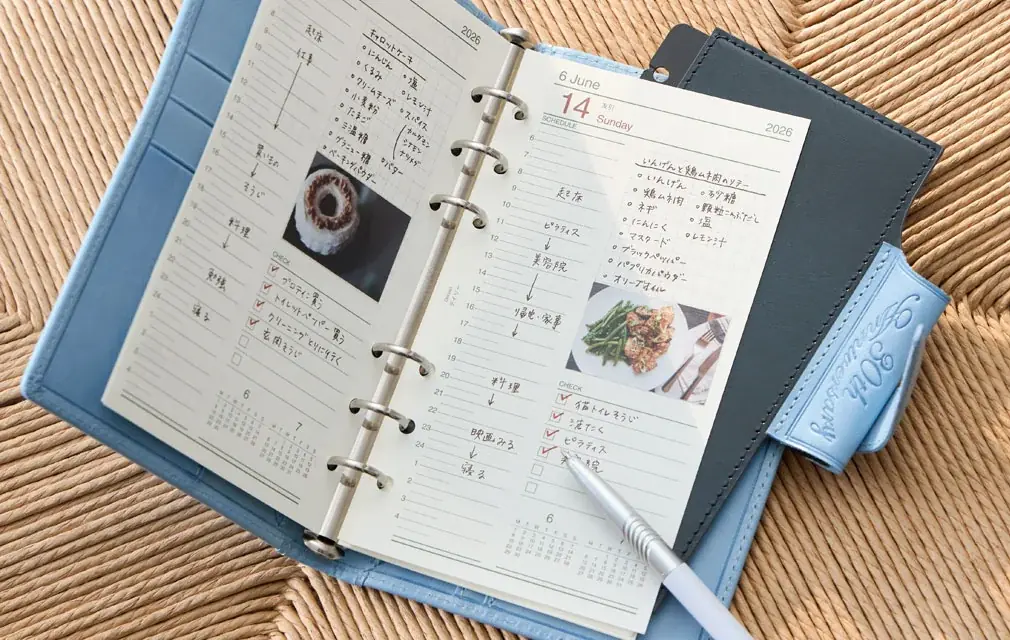 2026
起床
仕事
買いもの
そうじ
料理
勉強
寝る
キャロットケーキ
にんじん
くるみ
クリームチーズ
小麦粉
たまご
三温糖
グラニュー糖
ベーキングパウダー
塩
レモン汁
スパイス
カルダモン
シナモン
ナツメグ
バター
CHECK
プロテイン買う
トイレットペーパー買う
クリーニングとりに行く
玄関そうじ
6
7
6 June
14
Sunday
2026
SCHEDULE
6
7
8
9
10
11
12
13
14
15
16
17
18
19
20
21
22
23
24
1
2
3
4
起床
ピラティス
美容院
帰宅・家事
料理
映画みる
寝る
いんげんと鶏ムネ肉のソテー
いんげん
鶏ムネ肉
ネギ
にんにく
マスタード
ブラックペッパー
パプリカパウダー
オリーブオイル
砂糖
顆粒こんぶだし
塩
レモン汁
CHECK
猫トイレそうじ
ピラティス
6
30th
Anniversary